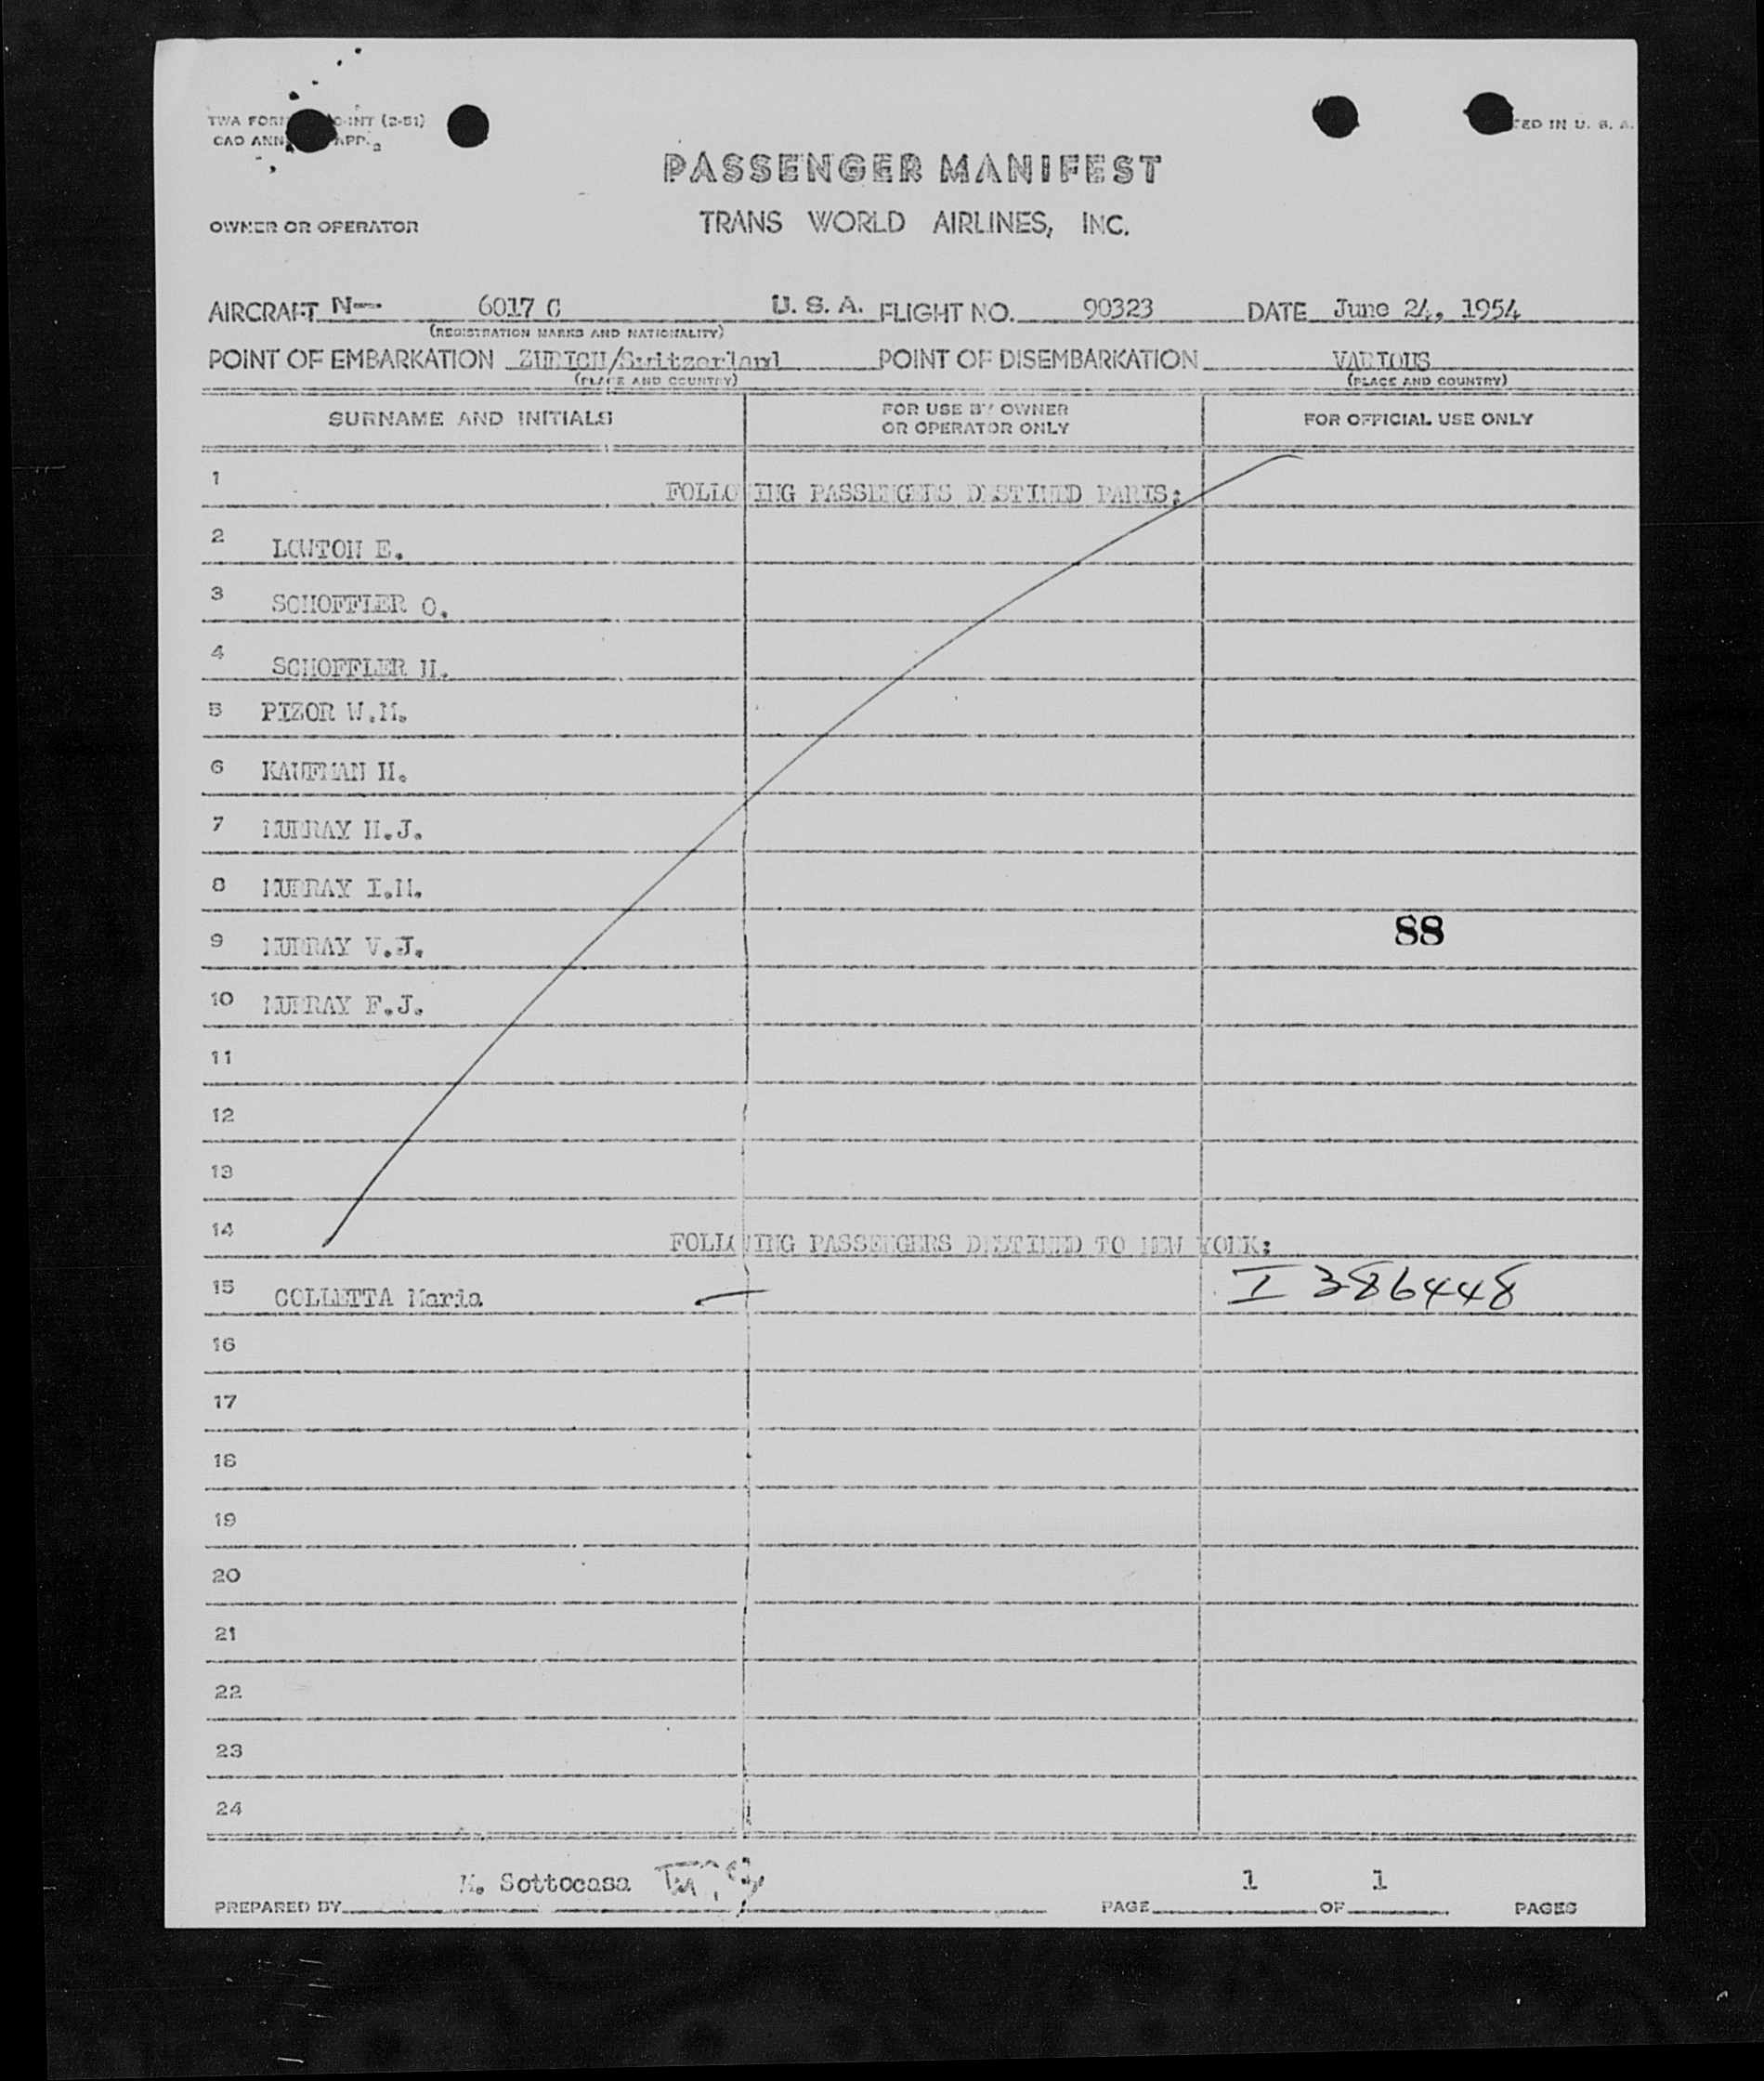 TWA FORM -INT (2-51)
CAO ANN APP. 2
TED IN U. S. A.
PASSENGER MANIFEST
OWNER OR OPERATOR TRANS WORLD AIRLINES, INC.
AIRCRAFT N— 6017 C U. S. A. FLIGHT NO. 90323 DATE June 24, 1954
(REGISTRATION MARKS AND NATIONALITY)
POINT OF EMBARKATION ZURICH/Switzerland POINT OF DISEMBARKATION VARIOUS
(PLACE AND COUNTRY) (PLACE AND COUNTRY)
SURNAME AND INITIALS FOR USE BY OWNER OR OPERATOR ONLY FOR OFFICIAL USE ONLY
1 FOLLOWING PASSENGERS DESTINED PARIS:
2 LOWTON E.
3 SCHOFFLER O.
4 SCHOFFLER H.
5 PIZOR W.M.
6 KAUFMAN H.
7 MURRAY H.J.
8 MURRAY I.M.
9 MURRAY V.J. 88
10 MURRAY F.J.
11
12
13
14 FOLLOWING PASSENGERS DESTINED TO NEW YORK:
15 COLLETTA Maria — I 386448
16
17
18
19
20
21
22
23
24
PREPARED BY M. Sottocasa PAGE 1 OF 1 PAGES